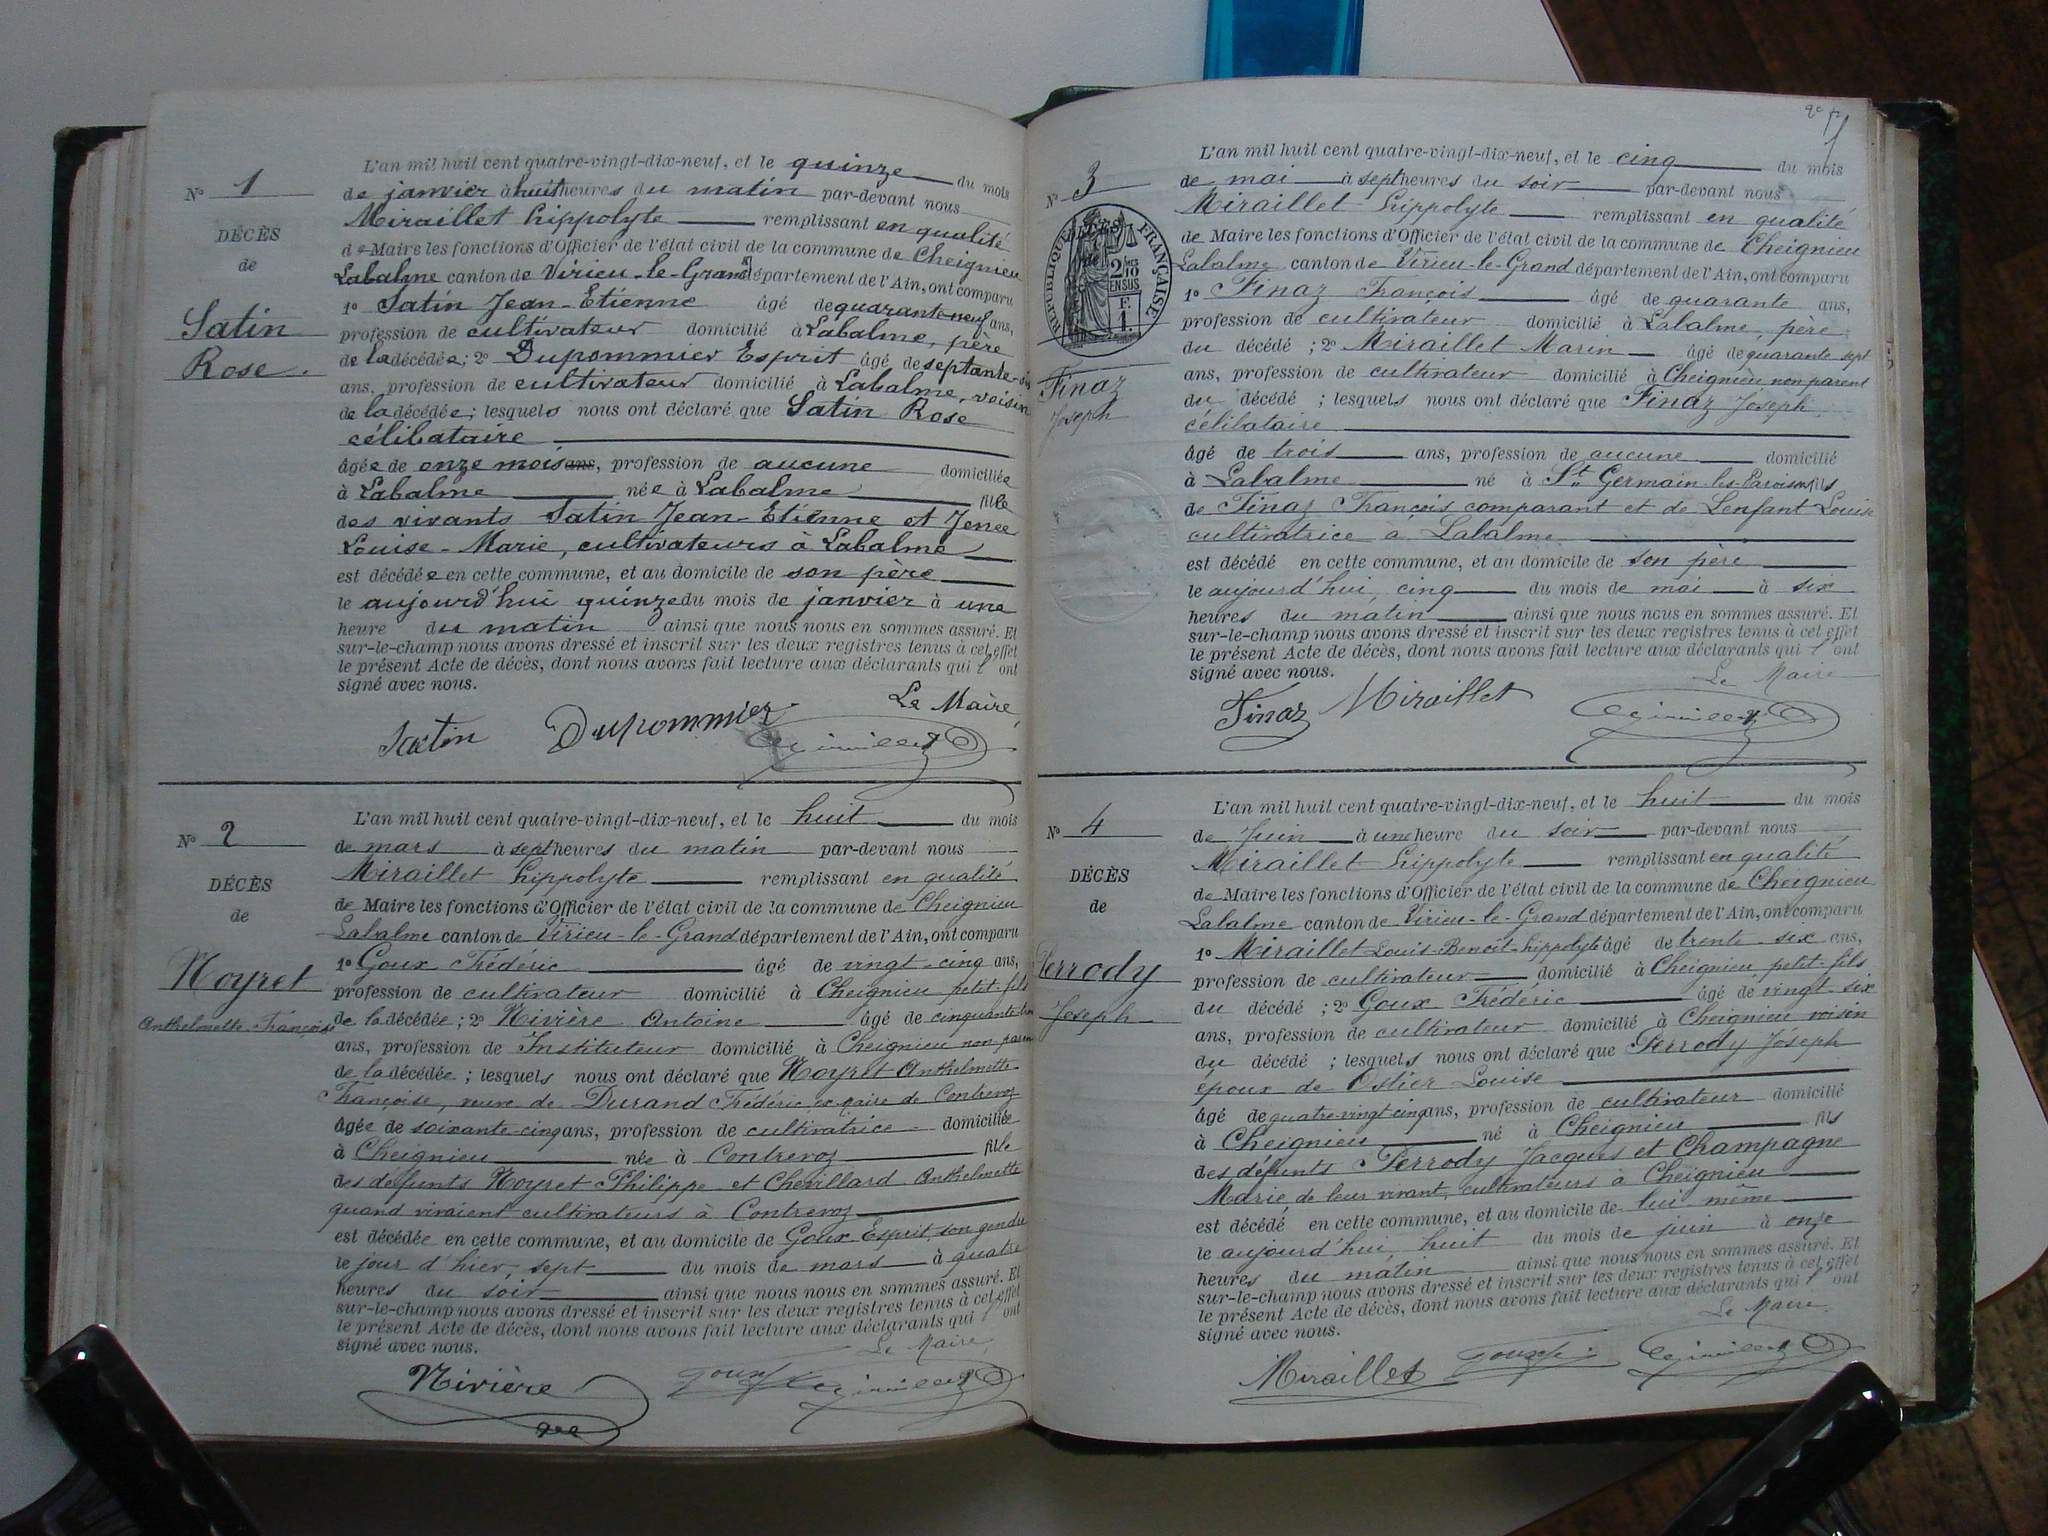 N° 1
DÉCÈS
de
Satin
Rose.
L'an mil huit cent quatre-vingt-dix-neuf, et le quinze du mois
de janvier à huit heures du matin par-devant nous
Miraillet hippolyte remplissant en qualité
de Maire les fonctions d'Officier de l'état civil de la commune de Cheignieu
Labalme canton de Virieu-le-Grand département de l'Ain, ont comparu
1° Satin Jean-Etienne âgé de quarante-neuf ans,
profession de cultivateur domicilié à Labalme, père
de la décédée; 2° Dupommier Esprit âgé de septante-six
ans, profession de cultivateur domicilié à Labalme, voisin
de la décédée; lesquels nous ont déclaré que Satin Rose
célibataire
âgée de onze mois ans, profession de aucune domiciliée
à Labalme née à Labalme fille
des vivants Satin Jean-Etienne et Jenee
Louise-Marie, cultivateurs à Labalme
est décédée en cette commune, et au domicile de son père
le aujourd'hui quinze du mois de janvier à une
heure du matin ainsi que nous nous en sommes assuré. Et
sur-le-champ nous avons dressé et inscrit sur les deux registres tenus à cet effet
le présent Acte de décès, dont nous avons fait lecture aux déclarants qui l'ont
signé avec nous.
Le Maire
Satin Dupommier
N° 2
DÉCÈS
de
Noyret
Anthelmette Françoise
L'an mil huit cent quatre-vingt-dix-neuf, et le huit du mois
de mars à sept heures du matin par-devant nous
Miraillet hippolyte remplissant en qualité
de Maire les fonctions d'Officier de l'état civil de la commune de Cheignieu
Labalme canton de Virieu-le-Grand département de l'Ain, ont comparu
1° Goux Fréderic âgé de vingt-cinq ans,
profession de cultivateur domicilié à Cheignieu petit-fils
de la décédée; 2° Nivière Antoine âgé de cinquante
ans, profession de Instituteur domicilié à Cheignieu non paren
de la décédée; lesquels nous ont déclaré que Noyret Anthelmette
Françoise, veuve de Durand Fréderic ex maire de Contrevoz
âgée de soixante-cinq ans, profession de cultivatrice domiciliée
à Cheignieu née à Contrevoz fille
des défunts Noyret Philippe et Chevillard Anthelmette
quand vivaient cultivateurs à Contrevoz
est décédée en cette commune, et au domicile de Goux Esprit, son gendre
le jour d'hier, sept du mois de mars à quatre
heures du soir ainsi que nous nous en sommes assuré. Et
sur-le-champ nous avons dressé et inscrit sur les deux registres tenus à cet effet
le présent Acte de décès, dont nous avons fait lecture aux déclarants qui l'ont
signé avec nous.
Le Maire,
Nivière Goux
N° 3
DÉCÈS
de
RÉPUBLIQUE FRANÇAISE
2/10
EN SUS
F.
1.
Finaz
Joseph
L'an mil huit cent quatre-vingt-dix-neuf, et le cinq du mois
de mai à sept heures du soir par-devant nous
Miraillet hippolyte remplissant en qualité
de Maire les fonctions d'Officier de l'état civil de la commune de Cheignieu
Labalme canton de Virieu-le-Grand département de l'Ain, ont comparu
1° Finaz François âgé de quarante ans,
profession de cultivateur domicilié à Labalme, père
du décédé; 2° Miraillet Marin âgé de quarante sept
ans, profession de cultivateur domicilié à Cheignieu non parent
du décédé; lesquels nous ont déclaré que Finaz Joseph
célibataire
âgé de trois ans, profession de aucune domicilié
à Labalme né à St Germain-les-Paroisses fils
de Finaz François comparant et de Lenfant Louise
cultivatrice à Labalme
est décédé en cette commune, et au domicile de son père
le aujourd'hui, cinq du mois de mai à six
heures du matin ainsi que nous nous en sommes assuré. Et
sur-le-champ nous avons dressé et inscrit sur les deux registres tenus à cet effet
le présent Acte de décès, dont nous avons fait lecture aux déclarants qui l'ont
signé avec nous.
Le Maire
Finaz Miraillet
N° 4
DÉCÈS
de
Perrody
Joseph
L'an mil huit cent quatre-vingt-dix-neuf, et le huit du mois
de Juin à une heure du soir par-devant nous
Miraillet hippolyte remplissant en qualité
de Maire les fonctions d'Officier de l'état civil de la commune de Cheignieu
Labalme canton de Virieu-le-Grand département de l'Ain, ont comparu
1° Miraillet Louis-Benoit-hippolyte âgé de trente-six ans,
profession de cultivateur domicilié à Cheignieu petit-fils
du décédé; 2° Goux Frédéric âgé de vingt-six
ans, profession de cultivateur domicilié à Cheignieu voisin
du décédé; lesquels nous ont déclaré que Perrody Joseph
époux de Ostier Louise
âgé de quatre-vingt-cinq ans, profession de cultivateur domicilié
à Cheignieu né à Cheignieu fils
des défunts Perrody Jacques et Champagne
Marie de leur vivant, cultivateurs à Cheignieu
est décédé en cette commune, et au domicile de lui-même
le aujourd'hui, huit du mois de juin à onze
heures du matin ainsi que nous nous en sommes assuré. Et
sur-le-champ nous avons dressé et inscrit sur les deux registres tenus à cet effet
le présent Acte de décès, dont nous avons fait lecture aux déclarants qui l'ont
signé avec nous.
Le Maire.
Miraillet Goux